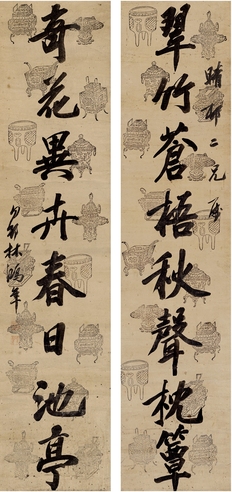 翠竹蒼梧秋聲枕簟
奇花異卉春日池亭
二兄
林鴻年